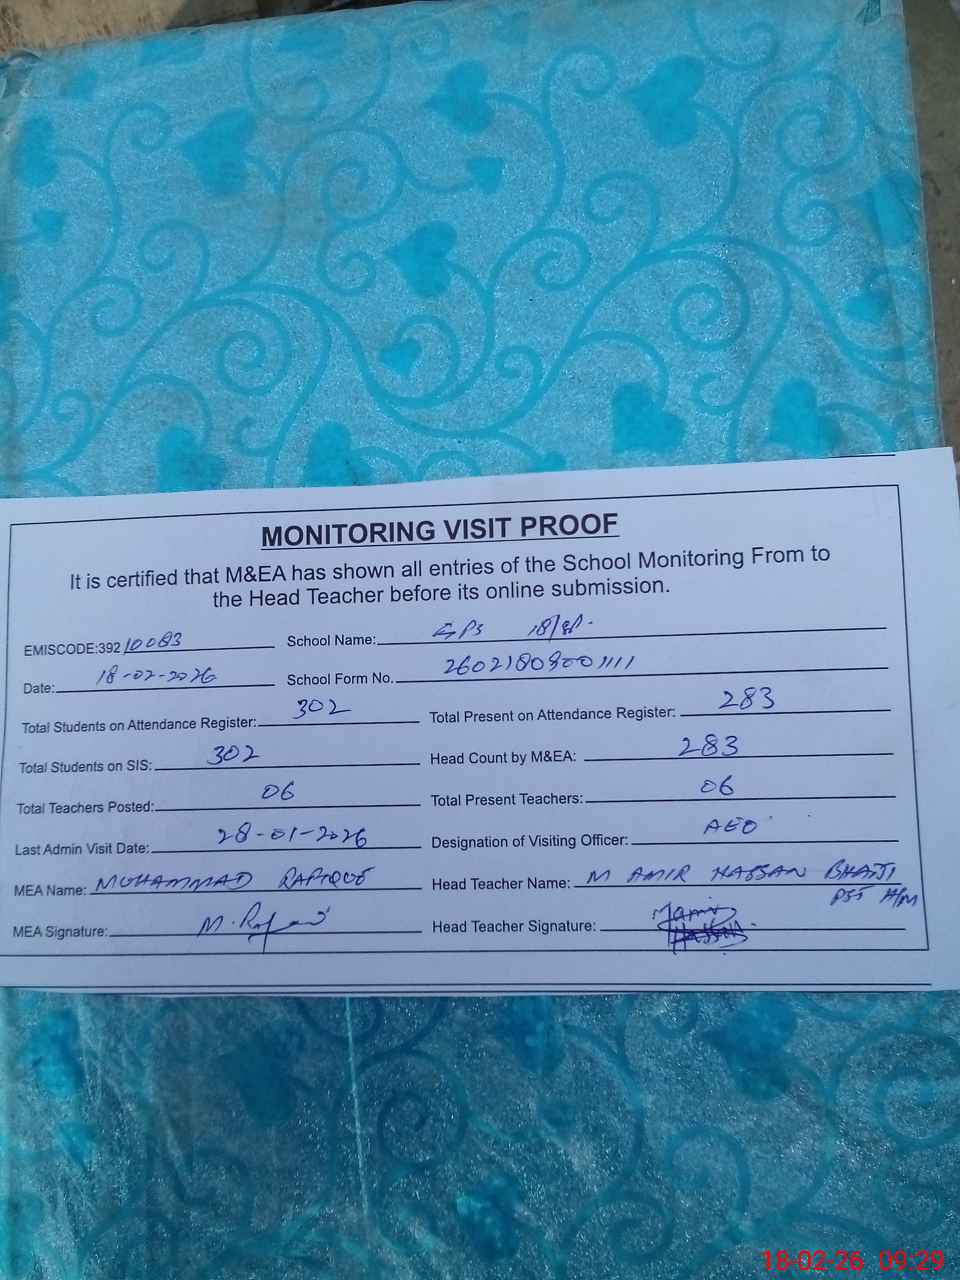 MONITORING VISIT PROOF
It is certified that M&EA has shown all entries of the School Monitoring From to
the Head Teacher before its online submission.
EMISCODE:392 10083 School Name: GPS 18/8P.
Date: 18-02-2026 School Form No. 26021809001111
Total Students on Attendance Register: 302 Total Present on Attendance Register: 283
Total Students on SIS: 302 Head Count by M&EA: 283
Total Teachers Posted: 06 Total Present Teachers: 06
Last Admin Visit Date: 28-01-2026 Designation of Visiting Officer: AEO
MEA Name: MUHAMMAD RAFIQUE Head Teacher Name: M AMIR HASSAN BHATTI
PST H/M
MEA Signature: M. Head Teacher Signature: M amir
Hassan
18-02-26 09:29